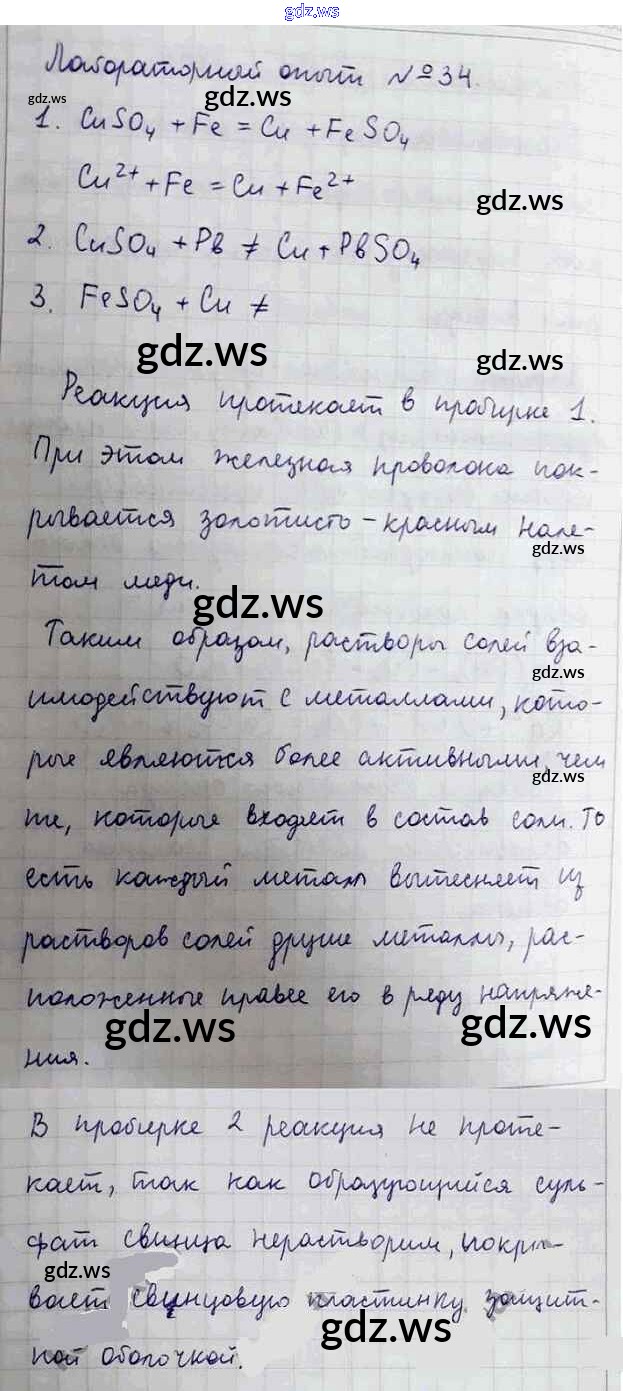 gdz.ws
Лабораторный опыт №34.
gdz.ws
gdz.ws
1. CuSO₄ + Fe = Cu + FeSO₄
Cu²⁺ + Fe = Cu + Fe²⁺
gdz.ws
2. CuSO₄ + Pb ≠ Cu + PbSO₄
3. FeSO₄ + Cu ≠
gdz.ws
gdz.ws
Реакция протекает в пробирке 1.
При этом железная проволока пок-
рывается золотисто-красным нале-
gdz.ws
том меди.
gdz.ws
Таким образом, растворы солей вза-
gdz.ws
имодействуют с металлами, кото-
рые являются более активными, чем
gdz.ws
те, которые входят в состав соли. То
есть каждый металл вытесняет из
растворов солей другие металлы, рас-
положенные правее его в ряду напряже-
gdz.ws
gdz.ws
ния.
В пробирке 2 реакция не проте-
кает, так как образующийся суль-
фат свинца нерастворим, покры-
gdz.ws
вает свинцовую пластинку защит-
gdz.ws
ной оболочкой.